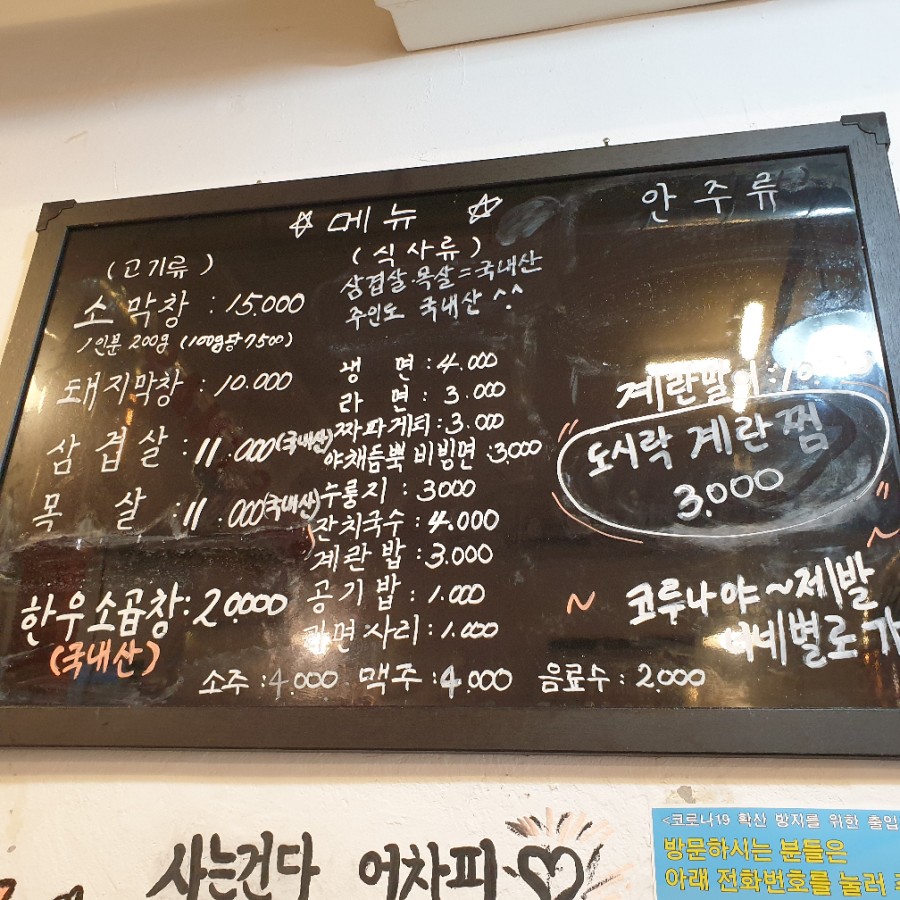 메 뉴
안 주 류
(고기류)
소 막창 : 15.000
1인분 200g (100g당 7500)
돼지막창 : 10.000
삼 겹 살 : 11.000(국내산)
목 살 : 11.000(국내산)
한우소곱창:20.000
(국내산)
(식사류)
삼겹살·목살=국내산
주인도 국내산^.^
냉 면 : 4.000
라 면 : 3.000
짜파게티 : 3.000
야채듬뿍 비빔면 :3000
누룽지 : 3000
잔치국수 : 4.000
계란밥 : 3.000
공기밥 : 1.000
라면·사리 : 1.000
소주 :4.000 맥주 :4.000 음료수 : 2.000
계란말이:
도시락 계란찜
3.000
~ 코루나야~제발
너네별로가
사는건다 어차피
<코로나19 확산 방지를 위한 출입
방문하시는 분들은
아래 전화번호를 눌러